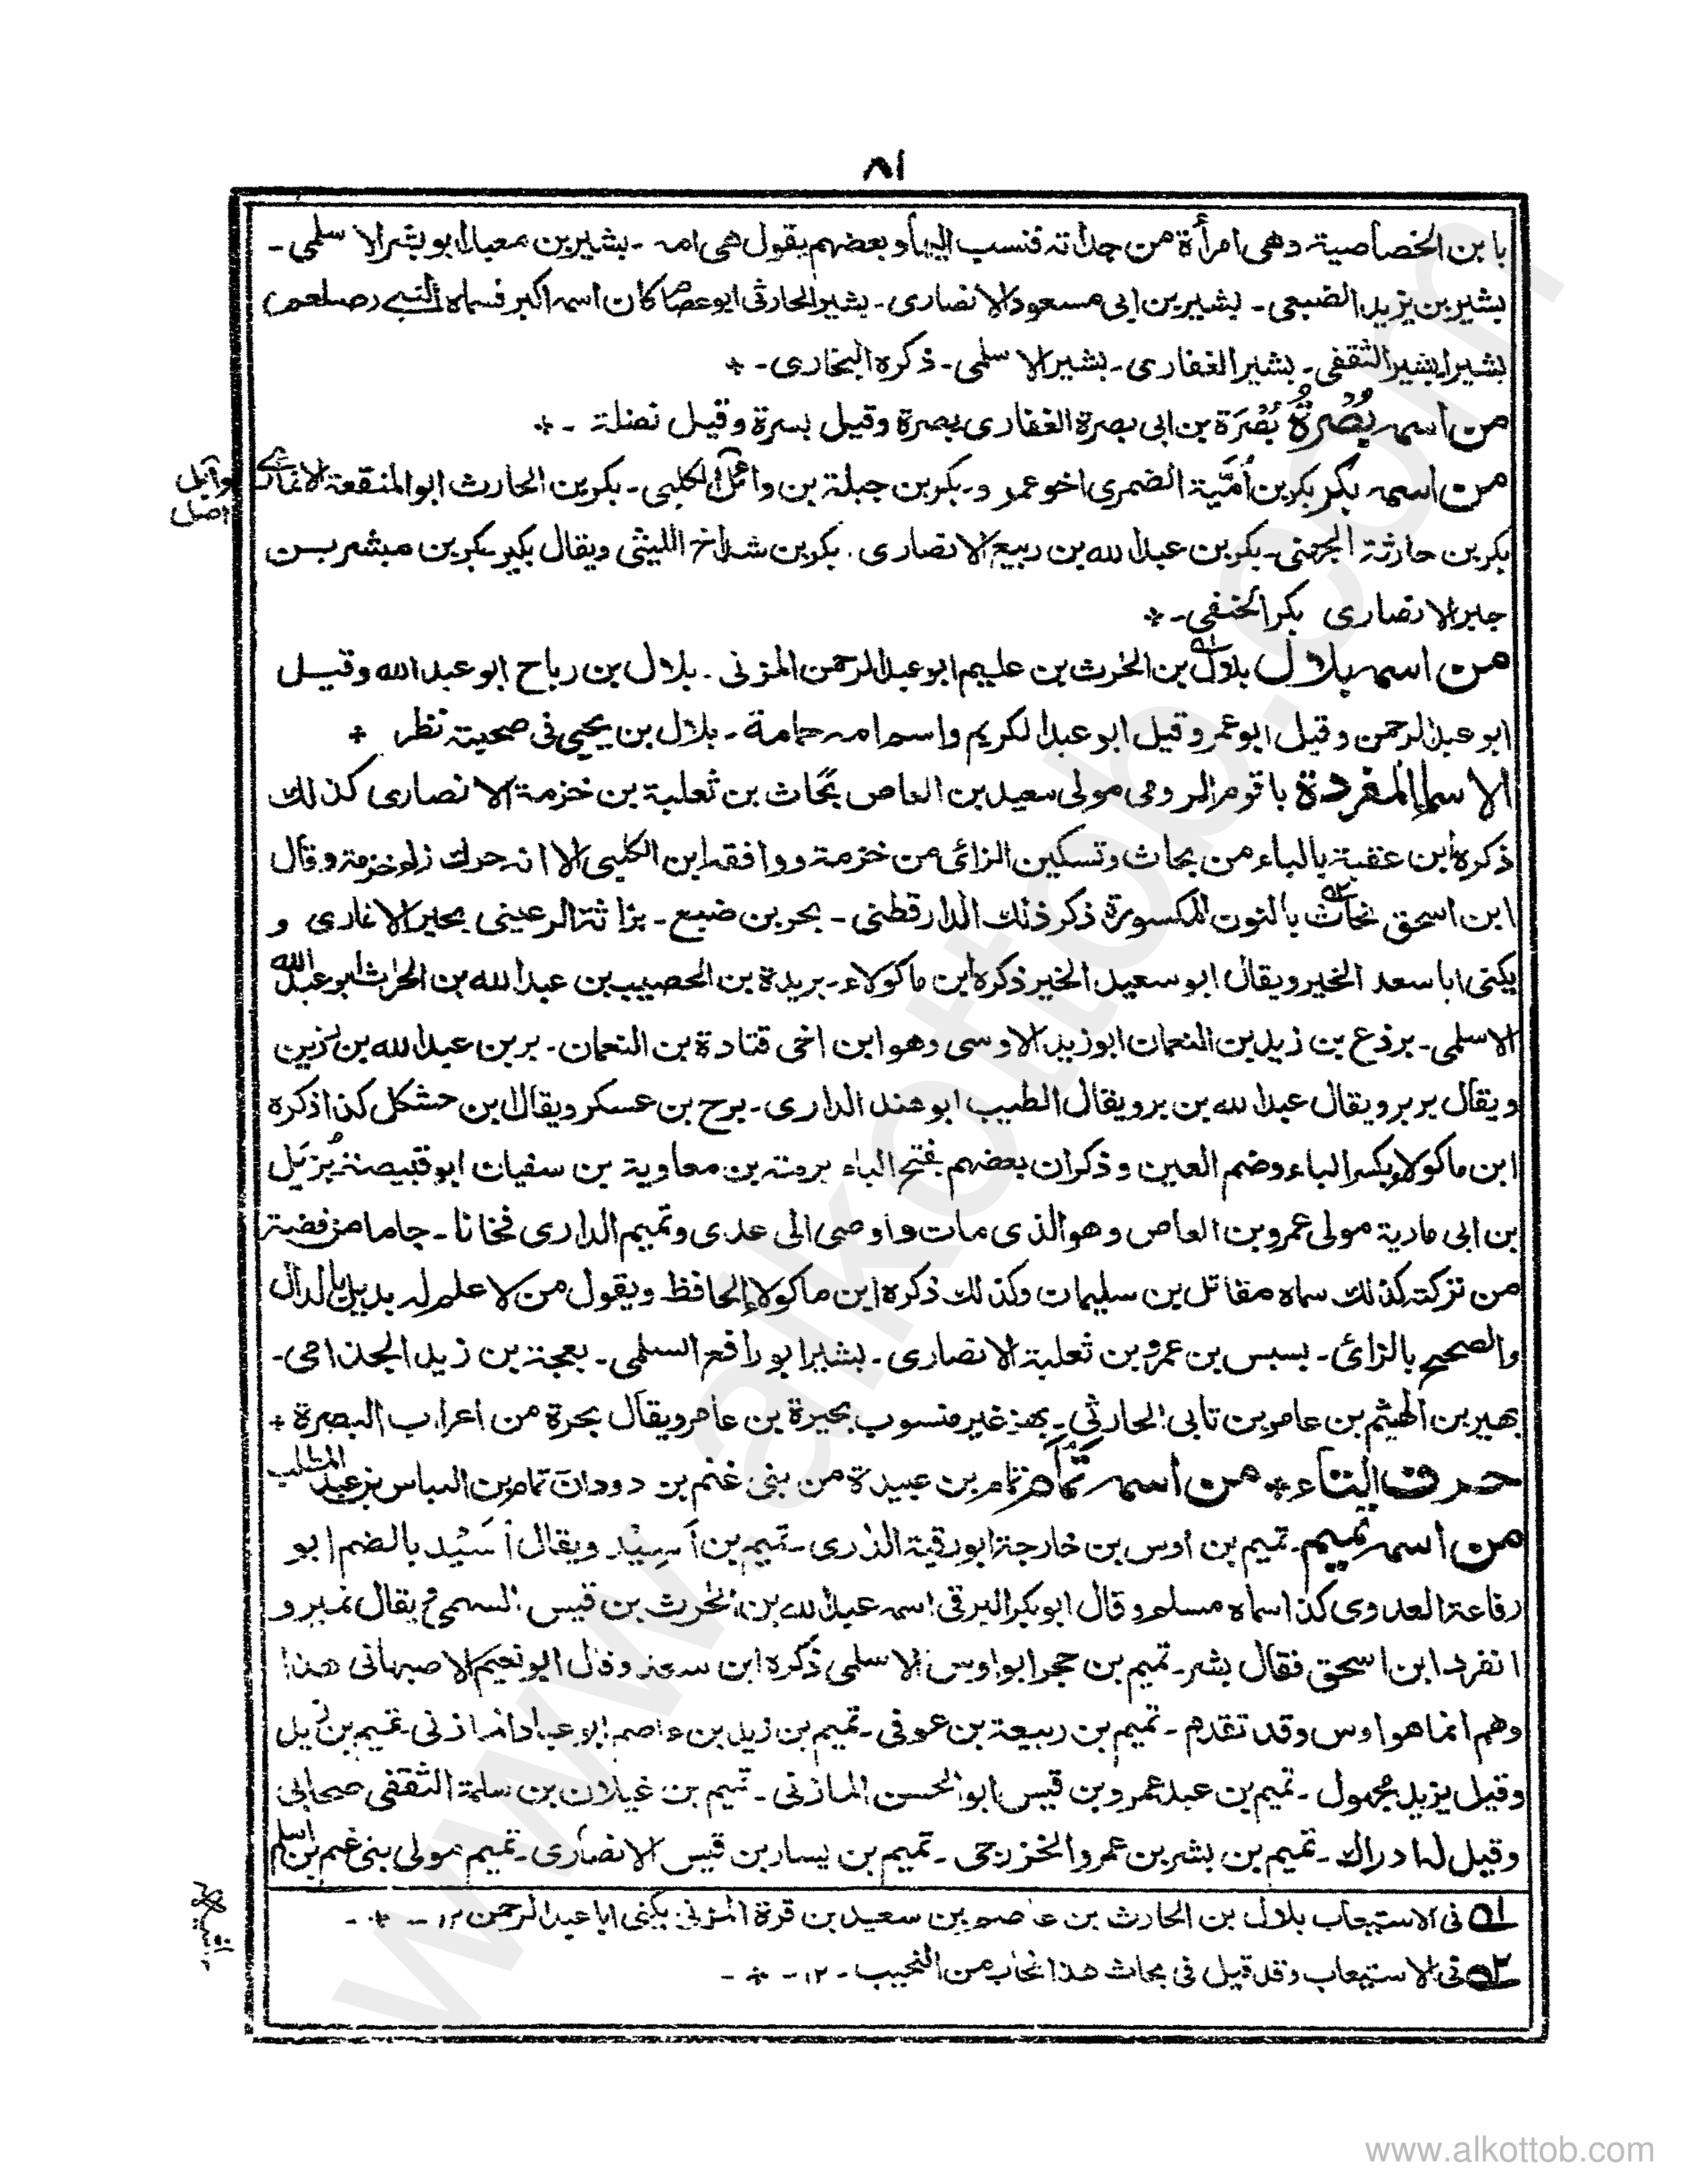 ٨١
بابن الخصاصية وهى امرأة من جداته فنسب اليها وبعضهم يقول هى امه ـ بشير بن معبد ابو بشر الاسلمى ـ
بشير بن يزيد الضبعى ـ بشير بن ابى مسعود الانصارى ـ بشير الحارثى ابو عصام كان اسمه اكبر فسماه النبى (صلعم)
بشيرا بشير الثقفى ـ بشير الغفارى ـ بشير الاسلمى ـ ذكره البخارى ـ *
من اسمه بُصْرةُ بُصْرَة بن ابى بصرة الغفارى بصرة وقيل بسرة وقيل نضلة ـ *
من اسمه بكر بكر بن أُمَيَّة الضمرى اخو عمرو ـ بكر بن جبلة بن وائل الكلبى ـ بكر بن الحارث ابو المنقعة الانمارى
وآيل
اصل
بكر بن حارثة الجهنى ـ بكر بن عبد الله بن ربيع الانصارى . بكر بن شداخ الليثى ويقال بكير ـ بكر بن مبشر بن
جبر الانصارى بكر الحنفى ـ *
من اسمه بلال بلال بن الحرث بن عليم ابو عبد الرحمن المزنى . بلال بن رباح ابو عبد الله وقيل
ابو عبد الرحمن وقيل ابو عمر وقيل ابو عبد الكريم واسم امه حمامة ـ بلال بن يحيى فى صحبته نظر *
الاسماء المفردة باقوم الرومى مولى سعيد بن العاص بحّاث بن ثعلبة بن خزمة الانصارى كذلك
ذكره ابن عقبة بالباء من بحاث وتسكين الزائ من خزمة ووافقه ابن الكلبى الا انه حرك زاء خزمة وقال
ابن اسحق نحاث بالنون المكسورة ذكر ذلك الدارقطنى ـ بحر بن ضبع ـ بزا ثة الرعينى بحير الانمارى و
يكنى ابا سعد الخير ويقال ابو سعيد الخير ذكره ابن ماكولاء ـ بريدة بن الحصيب بن عبد الله بن الحرث ابو عبد الله
الاسلمى ـ برذع بن زيد بن النعمان ابو زيد الاوسى وهو ابن اخى قتادة بن النعمان ـ بر بن عبد الله بن رزين
ويقال برير ويقال عبد الله بن بر ويقال الطيب ابو هند الدارى ـ برح بن عسكر ويقال ابن حشكل كذا ذكره
ابن ماكولاء بكسر الباء وضم العين وذكر ان بعضهم بفتح الباء برمة بن معاوية بن سفيان ابو قبيصة بُزيل
بن ابى مارية مولى عمرو بن العاص وهو الذى مات واوصى الى عدى وتميم الدارى فخانا ـ جاما من فضة
من تركته كذلك سماه مقاتل بن سليمان وكذلك ذكره ابن ماكولاء الحافظ ويقول من لا علم له بديل بالدال
والصحيح بالزائ ـ بسبس بن عمرو بن ثعلبة الانصارى ـ بشير ابو رافع السلمى ـ بعجة بن زيد الجذامى ـ
بهير بن الهيثم بن عامر بن نابى الحارثى ـ بهز غير منسوب بحيرة بن عامر ويقال بحرة من اعراب البصرة *
حرف التاء * من اسمه تَمَّام تمام بن عبيدة من بنى غنم بن دودان تمام بن العباس بن عبد المطلب
من اسمه تميم ـ تميم بن اوس بن خارجة ابو رقية الدارى ـ تميم بن أَسِيْد ويقال أُسَيْد بالضم ابو
رفاعة العدوى كذا سماه مسلم وقال ابو بكر البرقى اسمه عبد الله بن الحرث بن قيس السهمى يقال نمير و
انفرد ابن اسحق فقال بشر ـ تميم بن حجر ابو اوس الاسلمى ذكره ابن سعد وقال ابو نعيم الاصبهانى هذا
وهم انما هو اوس وقد تقدم ـ تميم بن ربيعة بن عوفى ـ تميم بن زيد بن عاصم ابو عباد المازنى ـ تميم بن زيد
وقيل يزيد مجهول ـ تميم بن عبد عمرو بن قيس ابو الحسن المازنى ـ تميم بن غيلان بن سلمة الثقفى صحابى
وقيل له ادراك ـ تميم بن بشر بن عمرو الخزرجى ـ تميم بن يسار بن قيس الانصارى ـ تميم مولى بنى غنم بن اسلم
١ فى الاستيعاب بلال بن الحارث بن عاصم بن سعيد بن قرة المزنى يكنى ابا عبد الرحمن ١٢ ـ * ـ
٢ فى الاستيعاب وقد قيل فى بحاث هذا نحاب من النحيب ـ ١٢ ـ * ـ
www.alkottob.com
www.alkottob.com